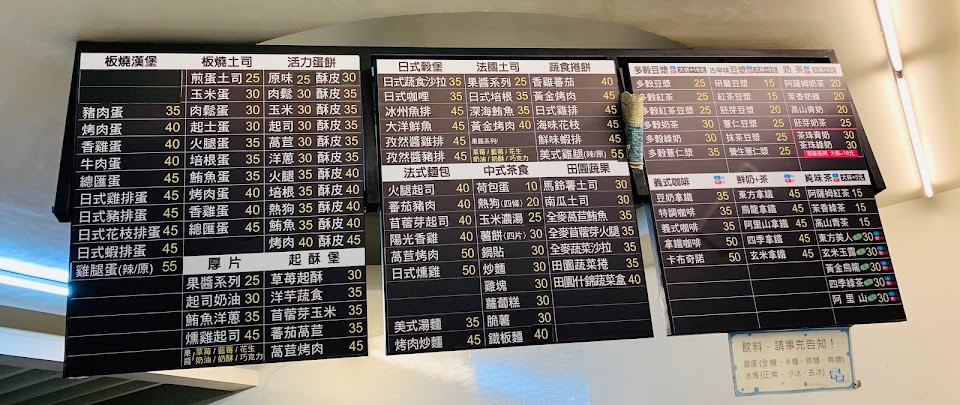 板燒漢堡
豬肉蛋 35
烤肉蛋 40
香雞蛋 40
牛肉蛋 40
總匯蛋 45
日式雞排蛋 45
日式豬排蛋 45
日式花枝排蛋 45
日式蝦排蛋 45
雞腿蛋(辣/原) 55
板燒土司
煎蛋土司 25
玉米蛋 30
肉鬆蛋 30
起士蛋 30
火腿蛋 35
培根蛋 35
鮪魚蛋 35
烤肉蛋 40
香雞蛋 40
總匯蛋 45
活力蛋餅
原味 25 酥皮 30
肉鬆 30 酥皮 35
玉米 30 酥皮 35
起司 30 酥皮 35
萵苣 30 酥皮 35
洋蔥 30 酥皮 35
火腿 35 酥皮 40
培根 35 酥皮 40
熱狗 35 酥皮 40
鮪魚 35 酥皮 40
烤肉 40 酥皮 45
厚片
果醬系列 25
起司奶油 30
鮪魚洋蔥 35
燻雞起司 45
果醬 草莓/藍莓/花生/奶油/奶酥/巧克力
起酥堡
草莓起酥 30
洋芋蔬食 35
苜蓿芽玉米 35
蕃茄萵苣 35
萵苣烤肉 45
日式穀堡
日式蔬食沙拉 35
日式咖哩 35
冰州魚排 45
大洋鮮魚 45
孜然香雞排 45
孜然醬豬排 45
法國土司
果醬系列 25
日式培根 35
深海鮪魚 35
黃金烤肉 40
果醬系列/
草莓/藍莓/花生
奶油/奶酥/巧克力
蔬食捲餅
香雞蕃茄 40
黃金烤肉 45
日式雞排 45
海味花枝 45
鮮味蝦排 45
美式雞腿(辣/原) 55
法式麵包
火腿起司 40
蕃茄豬肉 40
苜蓿芽起司 40
陽光香雞 40
萵苣烤肉 50
日式燻雞 50
美式湯麵 35
烤肉炒麵 45
中式茶食
荷包蛋 10
熱狗(四條) 20
玉米濃湯 25
薯餅(四片) 30
鍋貼 30
炒麵 30
雞塊 30
蘿蔔糕 30
脆薯 30
鐵板麵 40
田園蔬果
馬鈴薯土司 30
南瓜土司 30
全麥萵苣鮪魚 35
全麥苜蓿芽火腿 35
全麥蔬菜沙拉 35
田園蔬菜捲 35
田園什錦蔬菜盒 40
多穀豆漿 大杯+10元
多穀豆漿 25
多穀紅茶 25
多穀紅茶豆漿 25
多穀奶茶 30
多穀綠奶 30
多穀薏仁豆漿 35
古早味豆漿 大杯+5元
研磨豆漿 15
紅茶豆漿 15
胚芽豆漿 25
薏仁豆漿 25
抹茶豆漿 25
養生薏豆漿 25
奶茶 大杯+5元
阿薩姆奶茶 20
茉香奶綠 20
高山青奶 20
胚芽奶茶 25
茶珠青奶 30
茶珠綠奶 30
義式咖啡
豆奶拿鐵 35
特調咖啡 35
義式咖啡 35
拿鐵咖啡 50
卡布奇諾 50
鮮奶+茶
東方拿鐵 45
烏龍拿鐵 45
阿里山拿鐵 45
四季拿鐵 45
玄米拿鐵 45
純味茶 大杯+5元
阿薩姆紅茶 15
茉香綠茶 15
高山青茶 15
東方美人 30
玄米玉露 30
黃金烏龍 30
四季綠茶 30
阿里山 30
飲料、請事先告知！
甜度(全糖、半糖、微糖、無糖)
冰塊(正常、少冰、去冰)